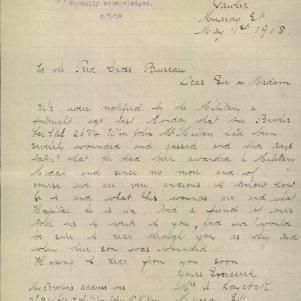 Formally acknowledged.
2/7/18
Gawler
Murray St
May 1st 1918
To the Red Cross Bureau
Dear Sir or Madam
We were notified by the Military a
fortnight ago last Monday that my Brother
L Cpl 2634 Wm John McMillan had been
severely wounded and gassed and five days
later that he had been awarded a Military
Medal and since no more and of
course we are very anxious to know how
he is and what his wounds are and what
Hospital he is in, And a friend of ours
told us to write to you, and we would
be sure to hear through you as they did
when their son was wounded
Hoping to hear from you soon
Yours Sincerely
Mrs A Laycock
My Brother's address was
Murray St